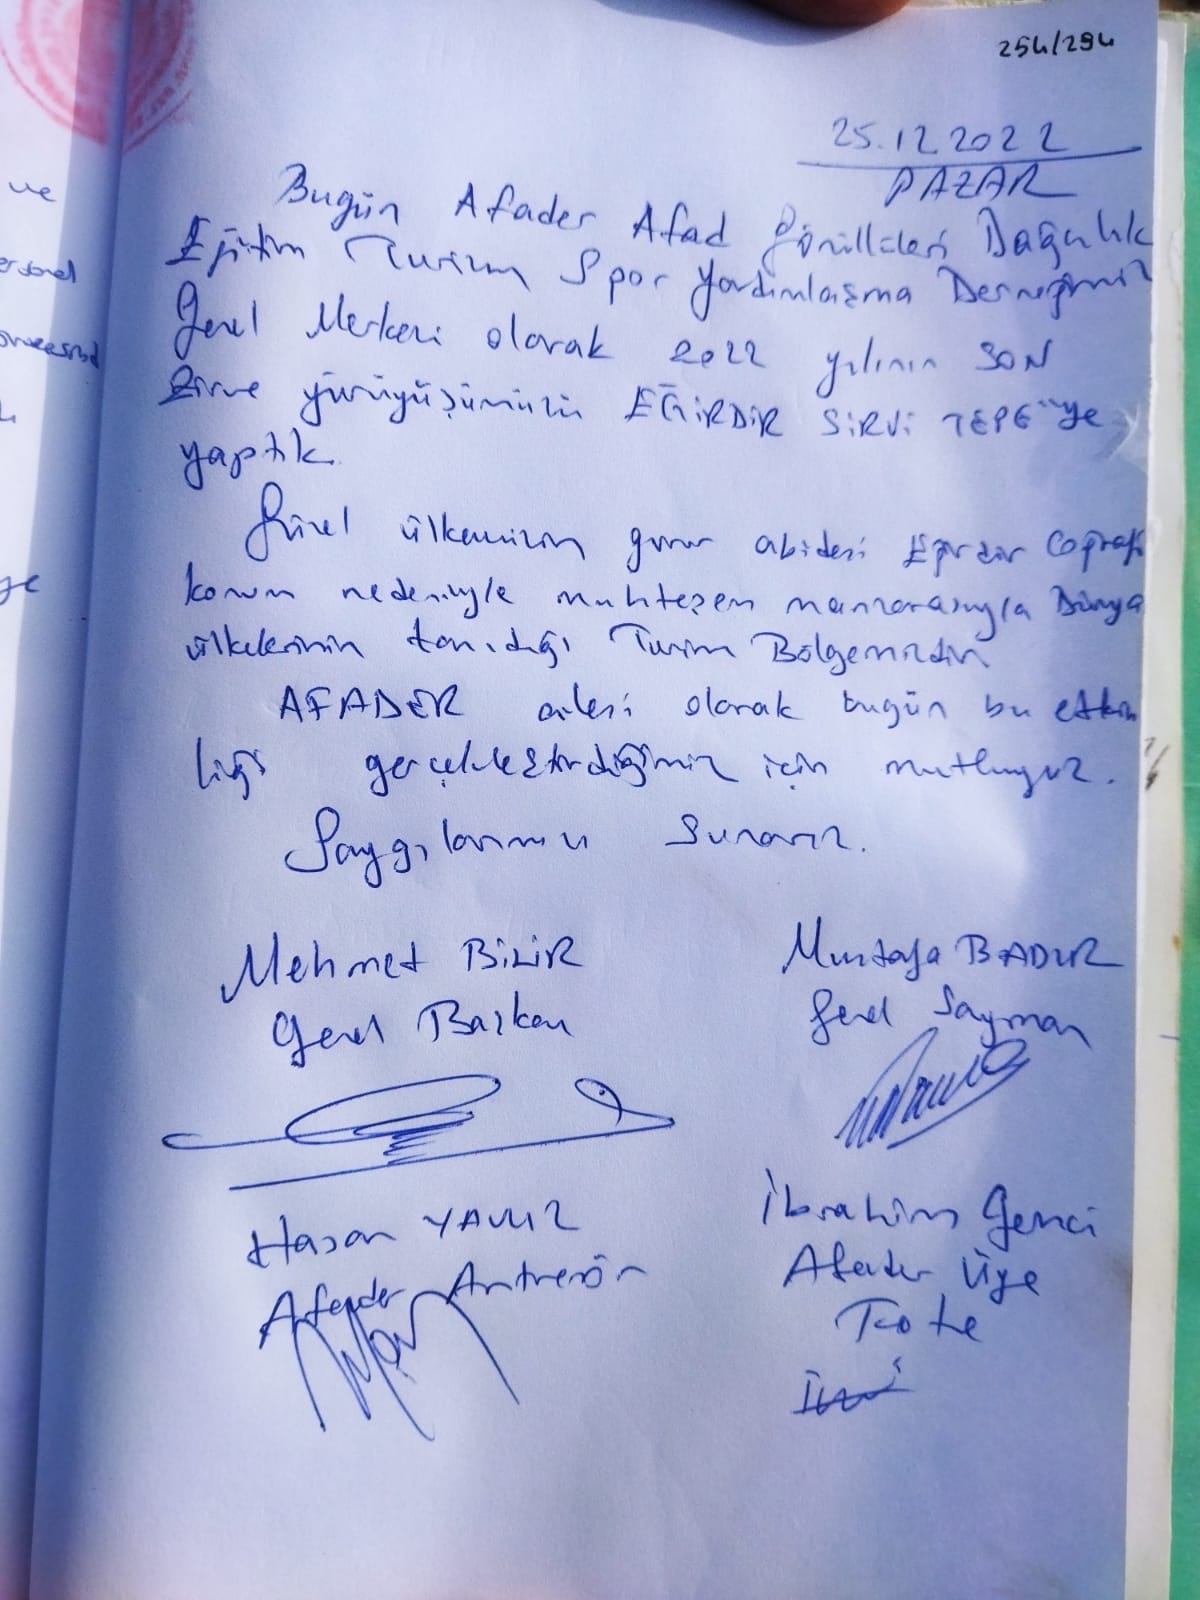 254/294
25.12.2022
PAZAR
Bugün Afader Afad Gönüllüleri Dağcılık
Eğitim Turizm Spor Yardımlaşma Derneğimiz
Genel Merkezi olarak 2022 yılının SON
Zirve yürüyüşümüzü EĞİRDİR SİRVİ TEPE'ye
yaptık.
Güzel ülkemizin gurur abidesi Eğirdir Coğrafi
konum nedeniyle muhteşem manzarasıyla Dünya
ülkelerinin tanıdığı Turizm Bölgemizdir
AFADER ailesi olarak bugün bu etkin
liği gerçekleştirdiğimiz için mutluyuz.
Saygılarımızı Sunarız.
Mehmet BİLİR
Genel Başkan
Mustafa BADUR
Genel Sayman
Hasan YAVUZ
Afader Antrenör
İbrahim Genci
Afader Üye
ve
ye